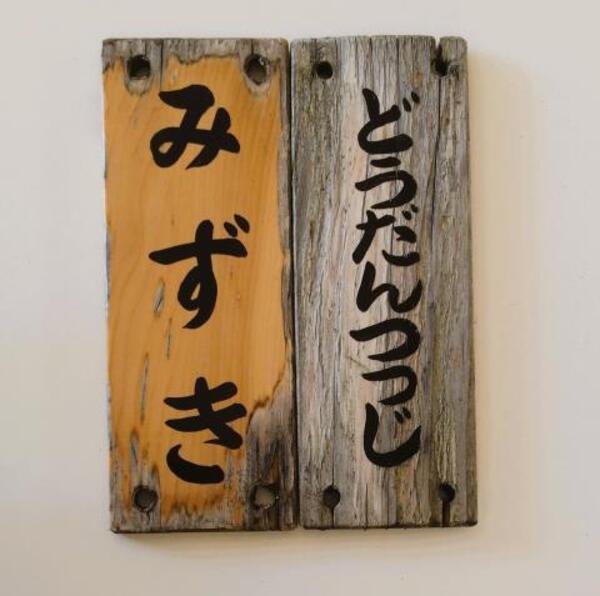 みずき
どうだんつつじ